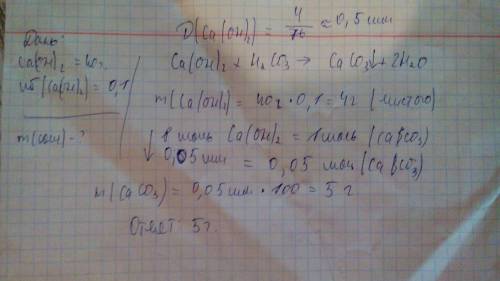 Дано:
Ca(OH)₂ = 40г
ω(Ca(OH)₂) = 0,1
m(соли) - ?
D(Ca(OH)₂) = 4/76 ≈ 0,5 моль
Ca(OH)₂ + H₂CO₃ → CaCO₃↓ + 2H₂O
m(Ca(OH)₂) = 40г · 0,1 = 4г (чистого)
1 моль Ca(OH)₂ = 1 моль (CaCO₃)
0,05 моль = 0,05 моль (CaCO₃)
m(CaCO₃) = 0,05 моль · 100 = 5 г
Ответ: 5г.